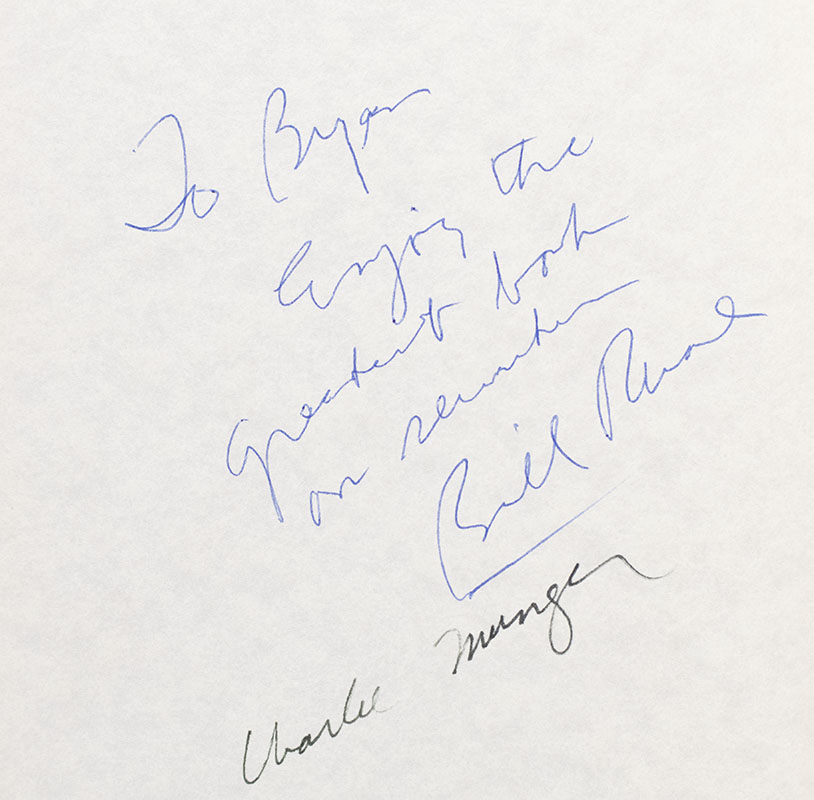 To Bryan
Enjoy the
greatest book
on securities
Bill Ruane
Charlie Munger